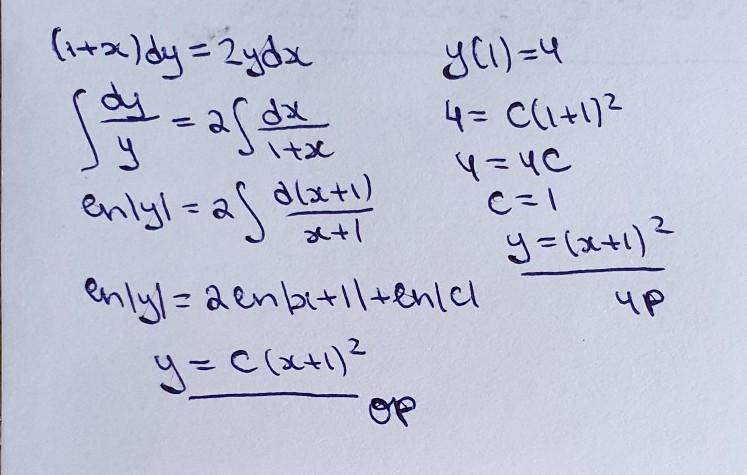 (1+x)dy = 2ydx
∫ dy/y = 2∫ dx/1+x
ln|y| = 2∫ d(x+1)/x+1
ln|y| = 2ln|x+1| + ln|c|
y = C(x+1)²
ОР
y(1) = 4
4 = C(1+1)²
4 = 4C
C = 1
y = (x+1)²
ЧР